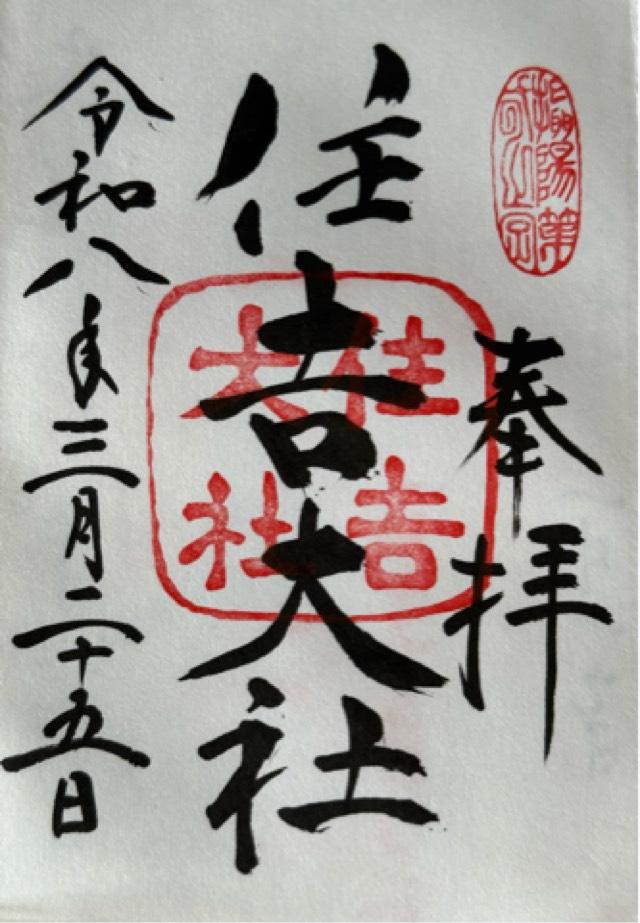 奉拝
住吉大社
住吉
大社
令和八年三月二十五日